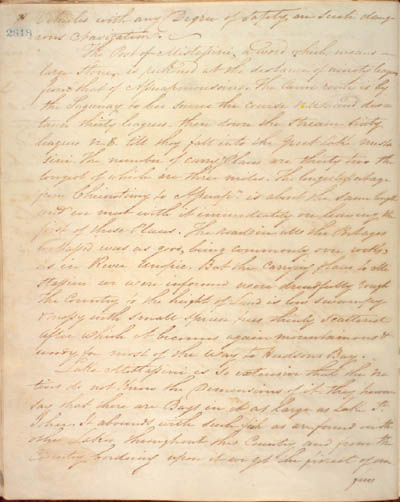 Vehicles with any Degree of Safety, on such dang-
erous Navigation.
2618
The Post of Mistassini, a word which means
large Stone, is reckoned at the distance of ninety leagues
from that of Ashuapmoussoin. The Canoe route is by
the
thirty leagues, then down the Stream sixty
leagues N.E. till they fall into the Great Lake Mista-
sini. The number of carrying Places are thirty two the
longest of which are three miles. The longest
from Chicoutimy to is about the same length
and we met with it immediately on leaving the
first of these Places. The road in all the Portages
we passed was as good, being commonly over rocks,
as in River But the Carrying places to Mis-
tassini we were informed were dreadfully rough
the Country to the height of Land is low swampy
& mossy with small Spruce trees thinly scattered
after which it becomes again mountainous &
woody for most of the Way to Hudsons Bay.
Lake Mistassini is so extensive that the na-
tives do not know the Dimensions of it they however
say that there are Bays in it as large as Lake St.
John. It abounds with such fish as are found in the
other Lakes throughout this Country, and from the
Country bordering upon it we get the finest of our
furs